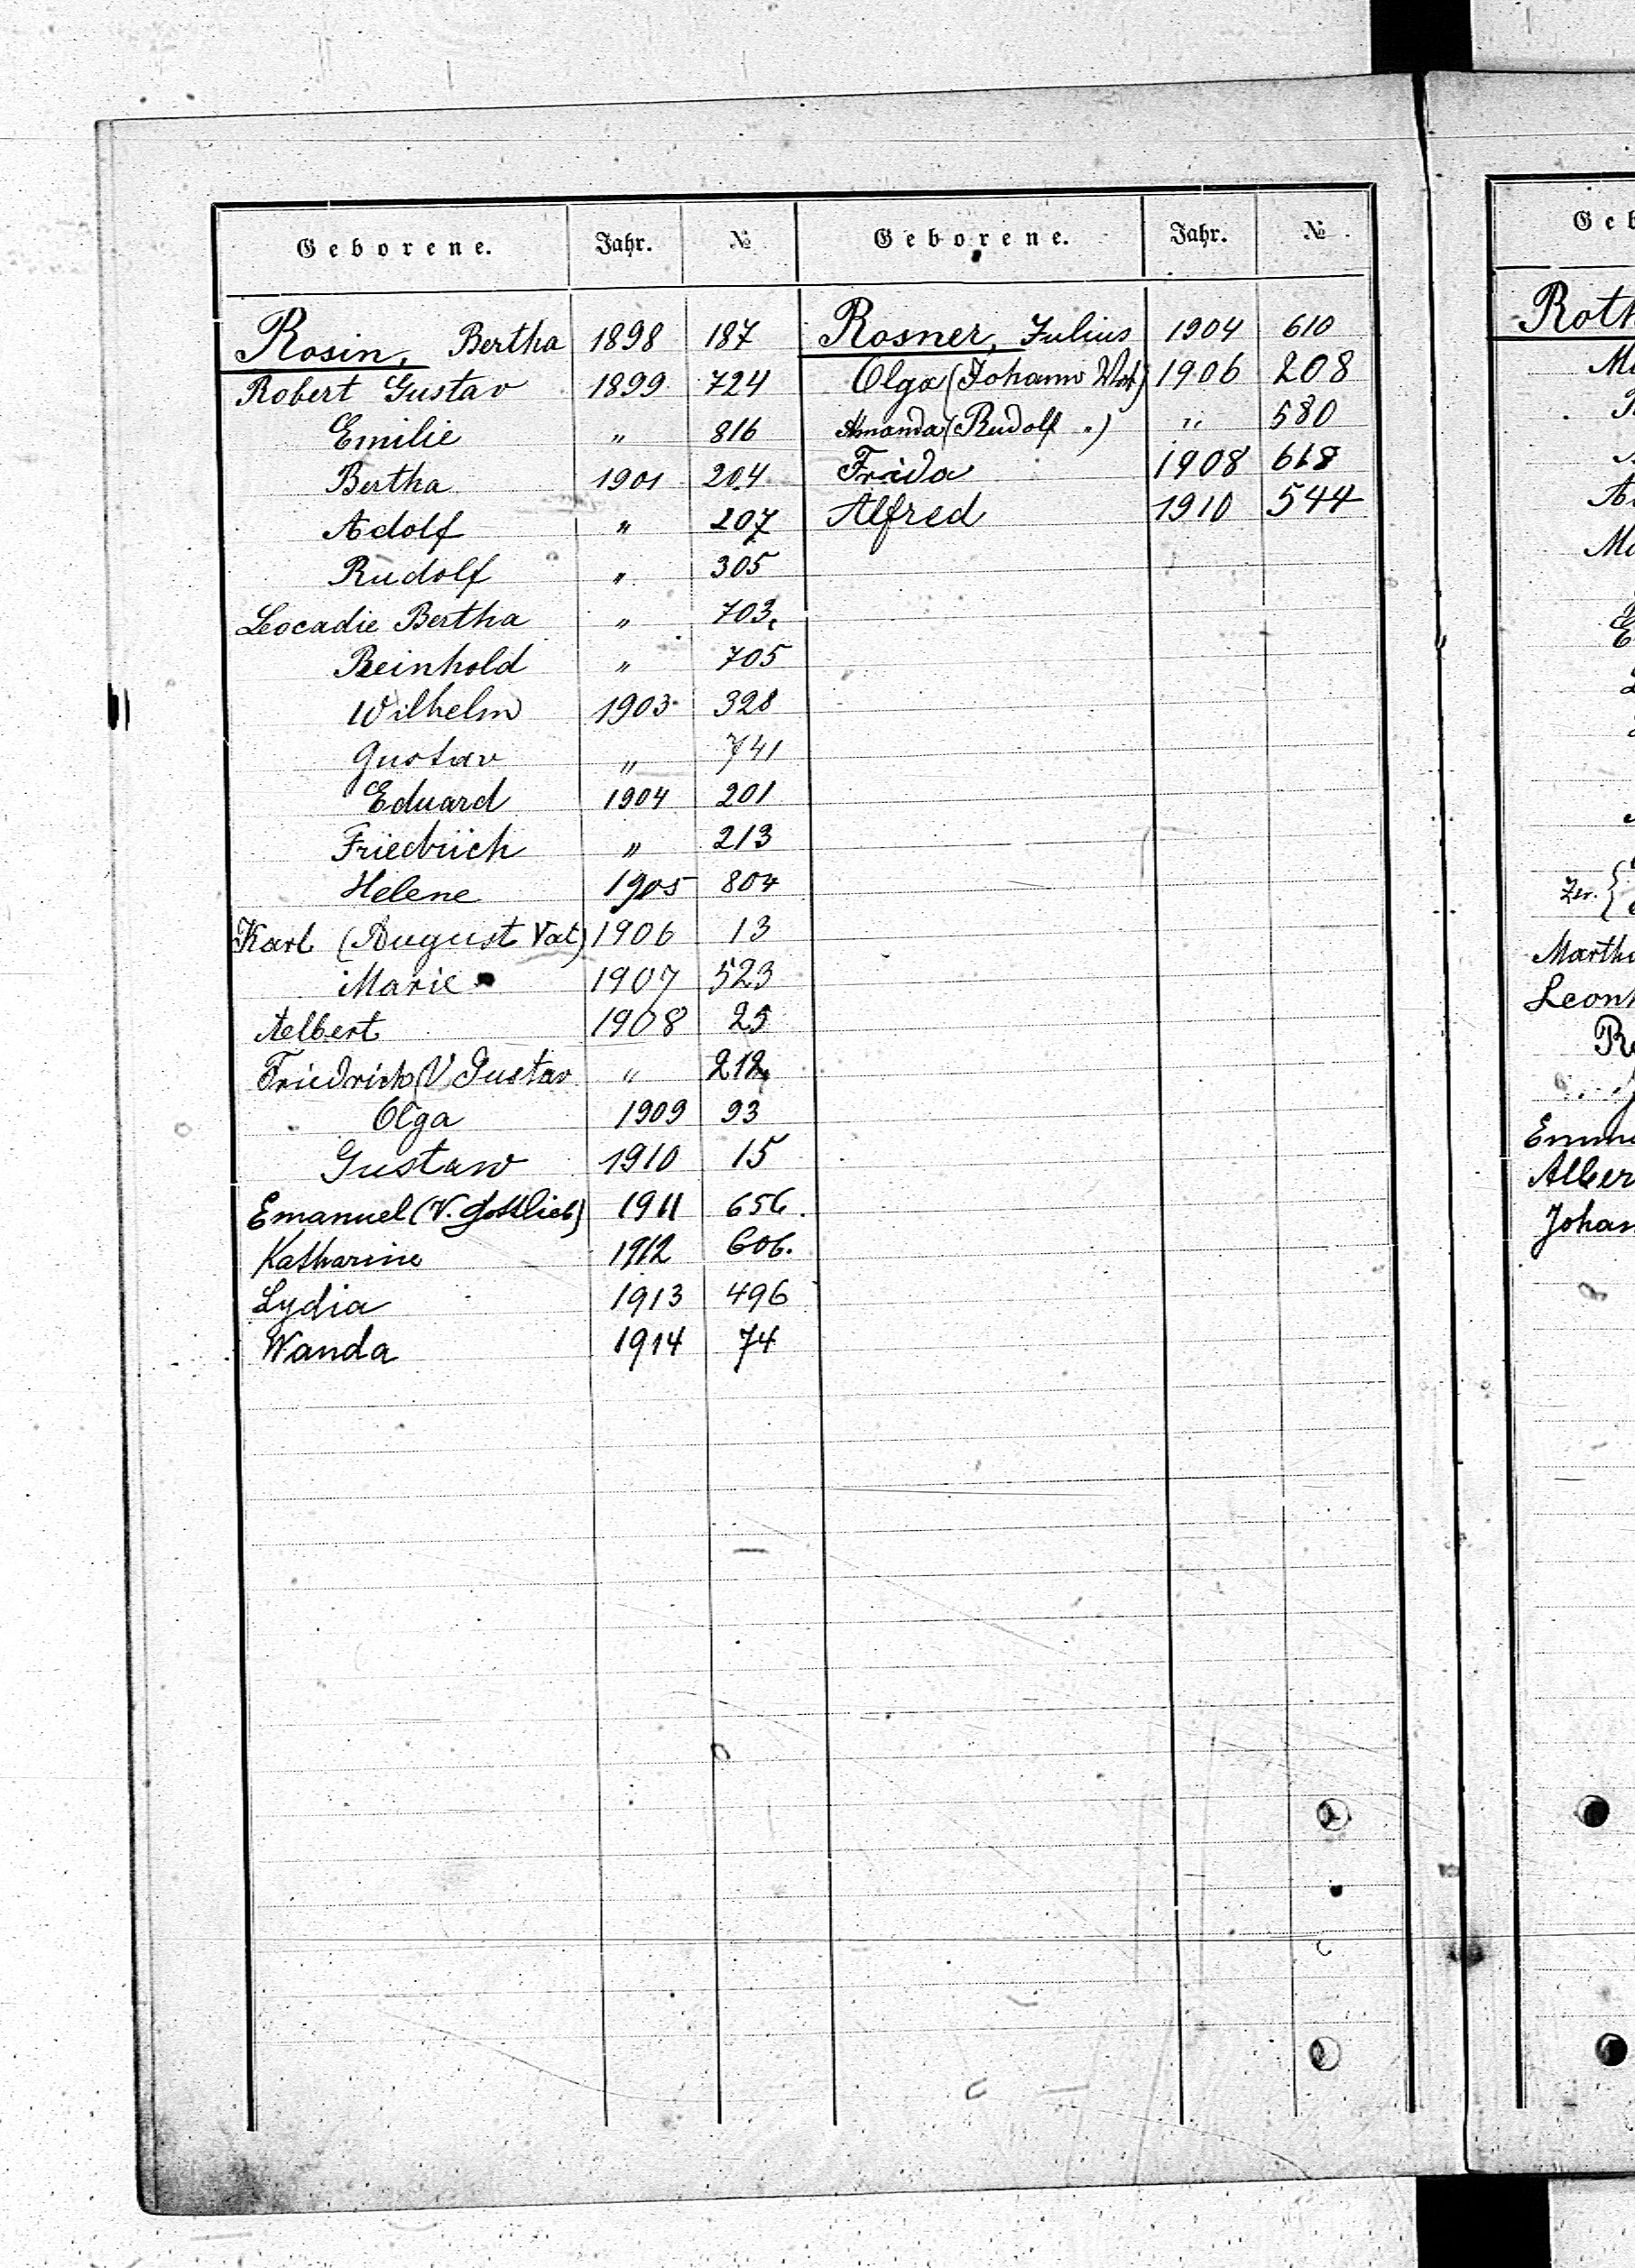 Geborene. Jahr. №
Rosin, Bertha 1898 187
Robert Gustav 1899 724
Emilie " 816
Bertha 1901 204
Adolf " 207
Rudolf " 305
Leocadie Bertha " 703.
Reinhold " 705
Wilhelm 1903 328
Gustav " 741
Eduard 1904 201
Friedrich " 213
Helene 1905 804
Karl (August Vat) 1906 13
Marie 1907 523
Aelbert 1908 25
Friedrich (V Gustav " 212
Olga 1909 93
Gustaw 1910 15
Emanuel (V. Gottlieb) 1911 656.
Katharine 1912 606.
Lydia 1913 496
Wanda 1914 74
Geborene. Jahr. №
Rosner, Julius 1904 610
Olga (Johann Vat) 1906 208
Amanda (Rudolf ") " 580
Frida 1908
Alfred 1910 544
Geb
Roth
Martha
Leonh
Emma
Alber
Johan